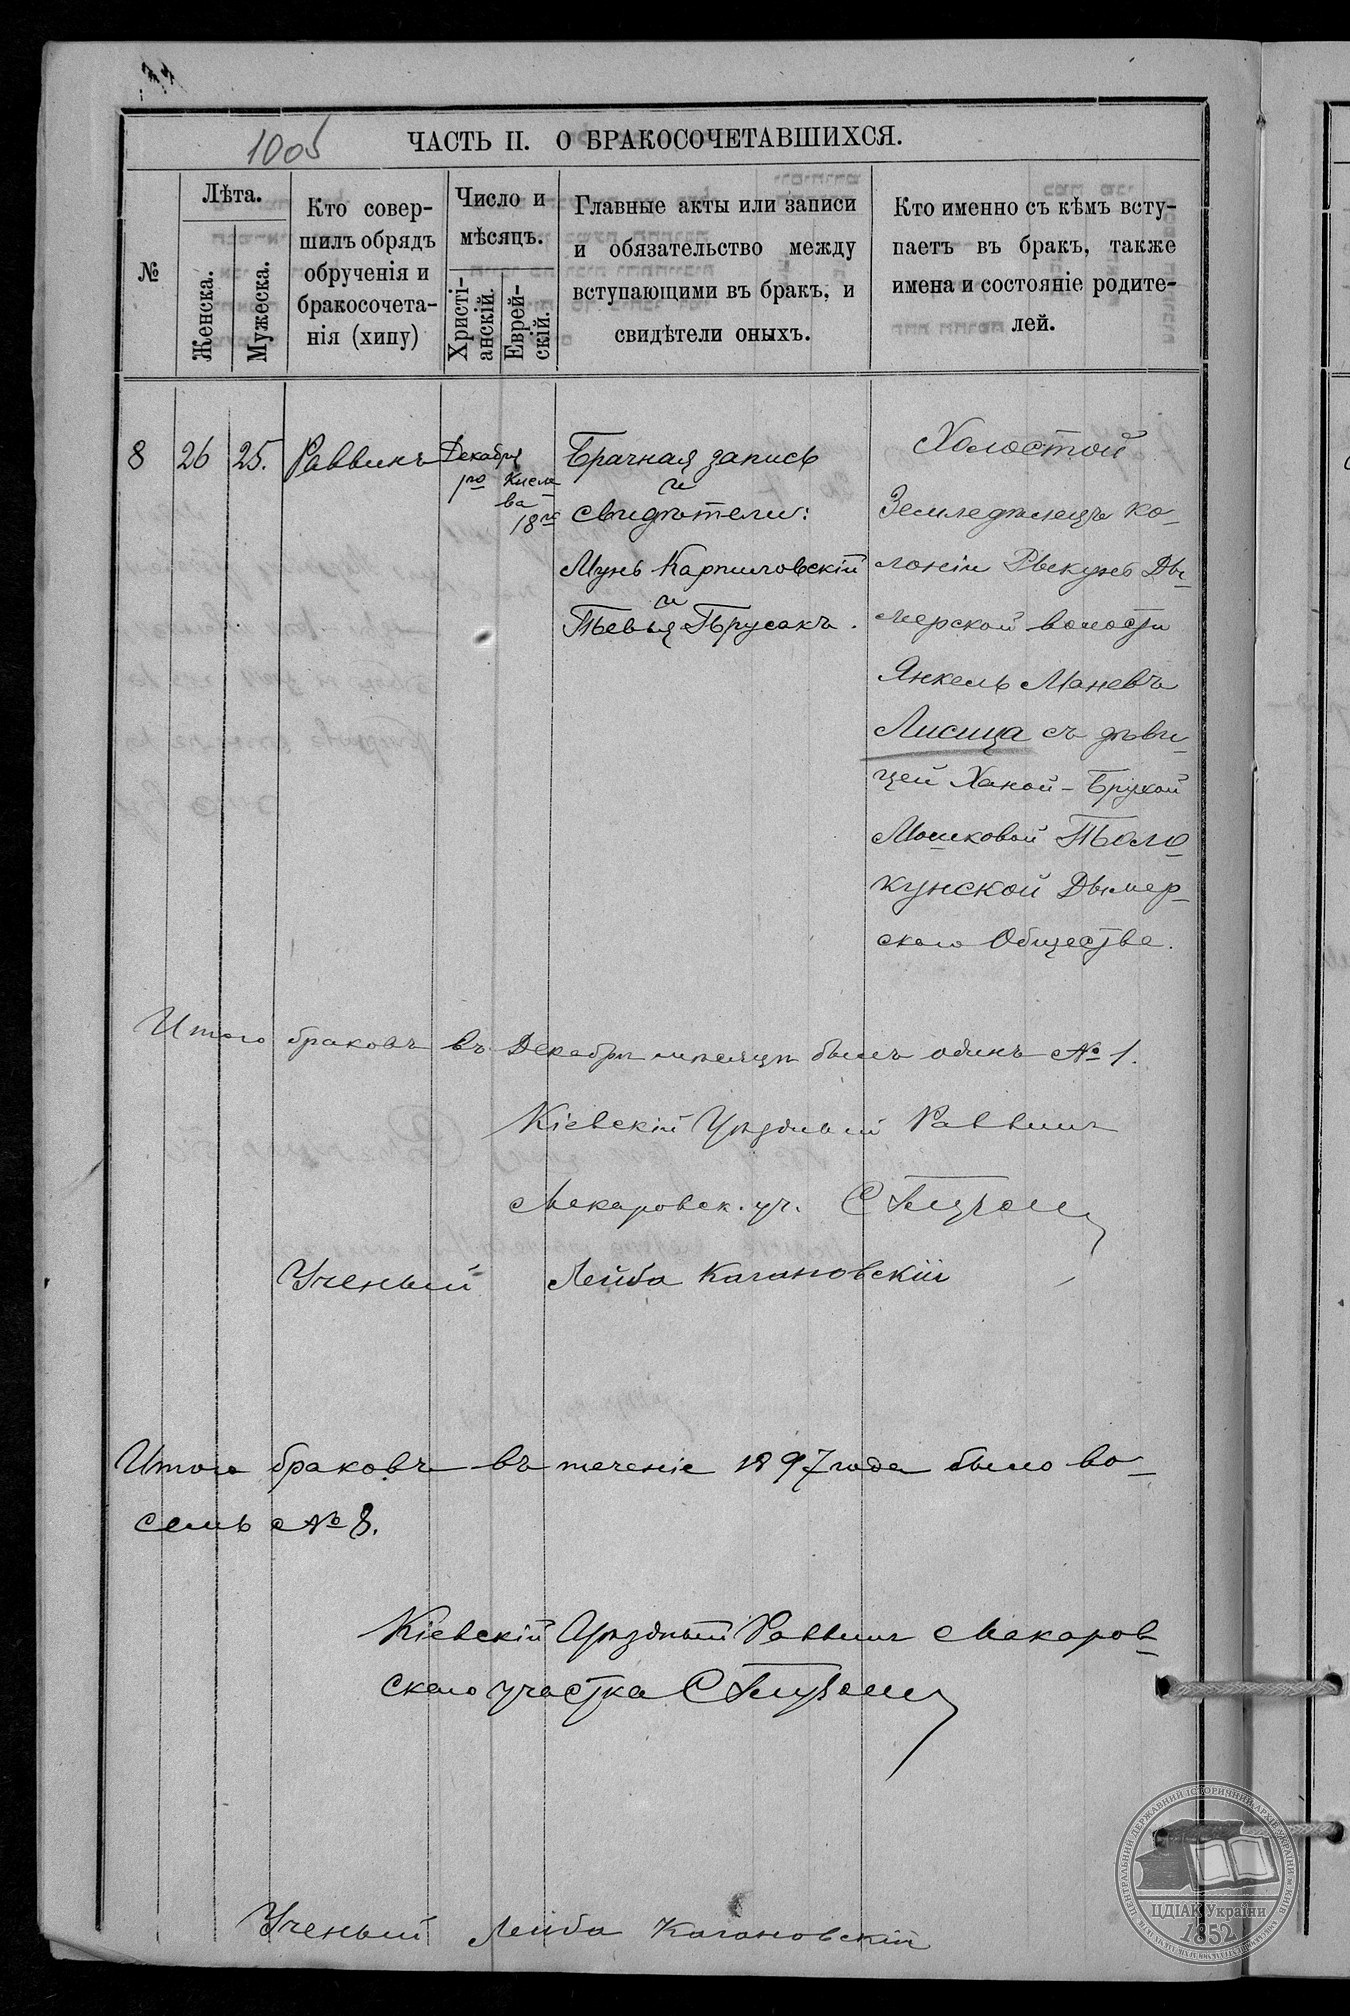 1005
ЧАСТЬ II. О БРАКОСОЧЕТАВШИХСЯ.
№
Лѣта.
Женска.
Мужеска.
Кто совер-
шилъ обрядъ
обрученія и
бракосочета-
нія (хипу)
Число и
мѣсяцъ.
Христі-
анскій.
Еврей-
скій.
Главные акты или записи
и обязательство между
вступающими въ бракъ, и
свидѣтели оныхъ.
Кто именно съ кѣмъ всту-
паетъ въ бракъ, также
имена и состояніе родите-
лей.
8
26
25.
Раввинъ
Декабря
1го
Кисле-
ва
18го
Брачная запись
и
свидѣтели:
Мунь Карпиловскій
и
Тевья Брусакъ.
Холостой
Земледѣлецъ ко-
лоніи Рыкунь Ды-
мерской волости
Янкель Маневъ
Лисица съ дѣви-
цей Ханой-Брухой
Мошковой Толо-
кунской Дымер-
скаго Общества.
Итого браковъ въ Декабрѣ мѣсяцѣ былъ одинъ № 1.
Кіевскій Уѣздный Раввинъ
Макаровск. уч.
Ученый Лейба Кагановскій
Итого браковъ въ теченіе 1897 года было во-
семь № 8.
Кіевскій Уѣздный Раввинъ Макаров-
скаго участка
Ученый Лейба Кагановскій
ЦЕНТРАЛЬНИЙ ДЕРЖАВНИЙ ІСТОРИЧНИЙ АРХІВ УКРАЇНИ м. КИЇВ
ЦДІАК України
1852